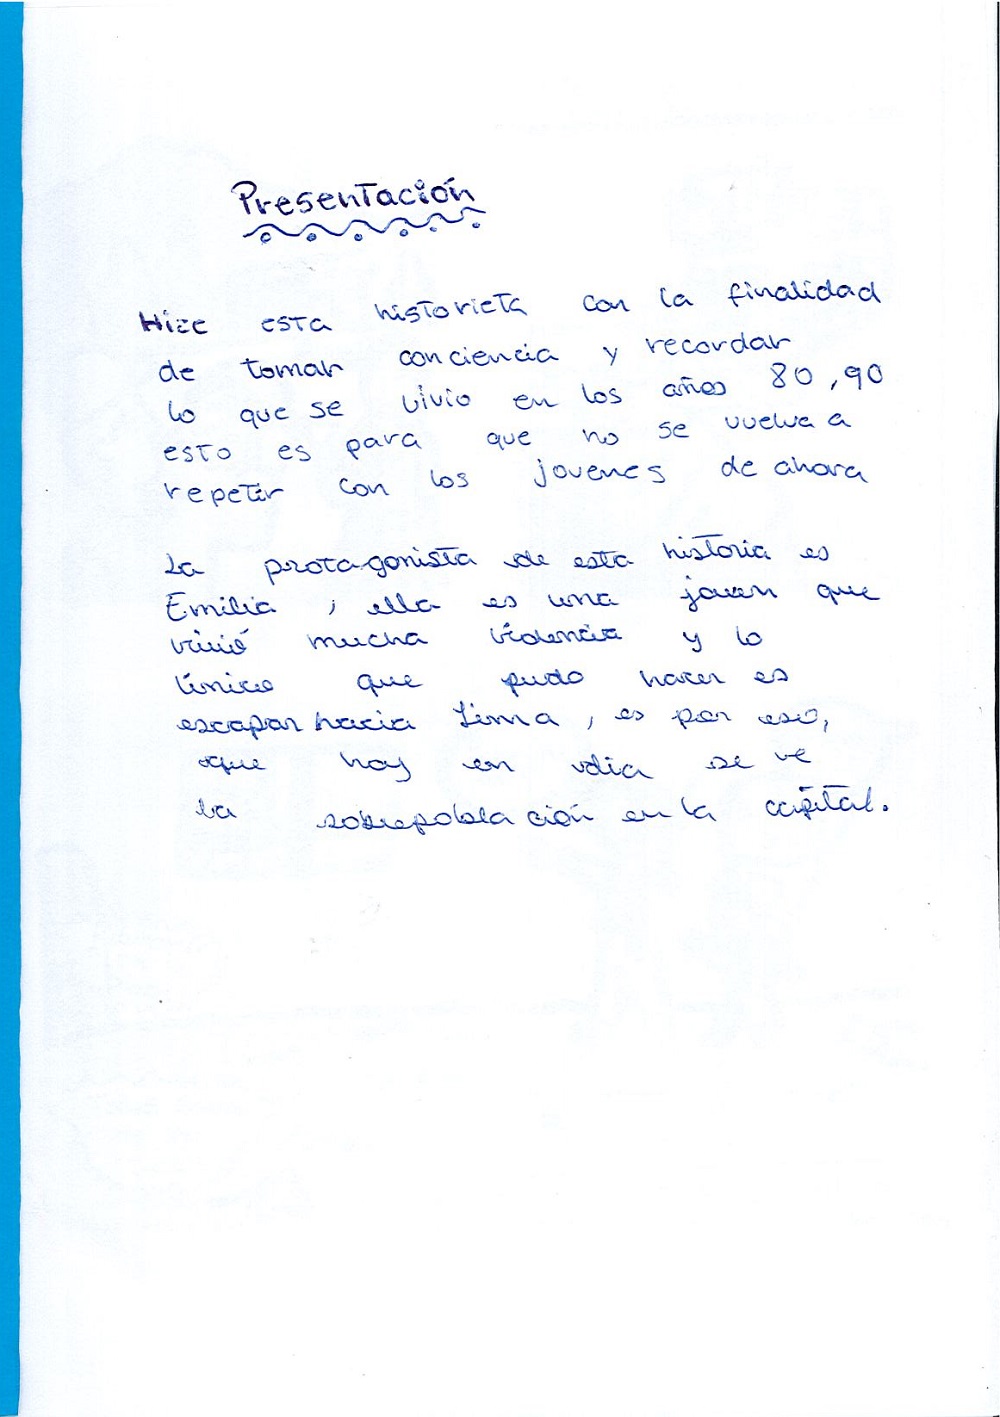 Presentación
Hize esta historieta con la finalidad
de tomar conciencia y recordar
lo que se vivio en los años 80,90
esto es para que no se vuelva a
repetir con los jovenes de ahora
La protagonista de esta historia es
Emilia ; ella es una joven que
vivió mucha violencia y lo
único que pudo hacer es
escapar hacia Lima, es por eso,
que hoy en dia se ve
la sobrepoblación en la capital.